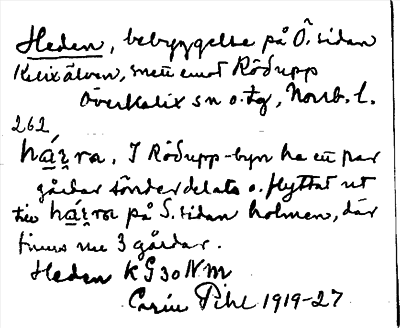 Heden, bebyggelse på Ö. sidan
Kalixälven, mitt emot Rödupp
Överkalix sn o. tg, Norrb. l.
262
há̱ɪ̯ra. I Rödupp-byn ha ett par
gårdar sönderdelats o. flyttat ut
till há̱ɪ̯ra på S. sidan holmen, där
finns nu 3 gårdar.
Heden K G30 NM
Carin Pihl 1919-27